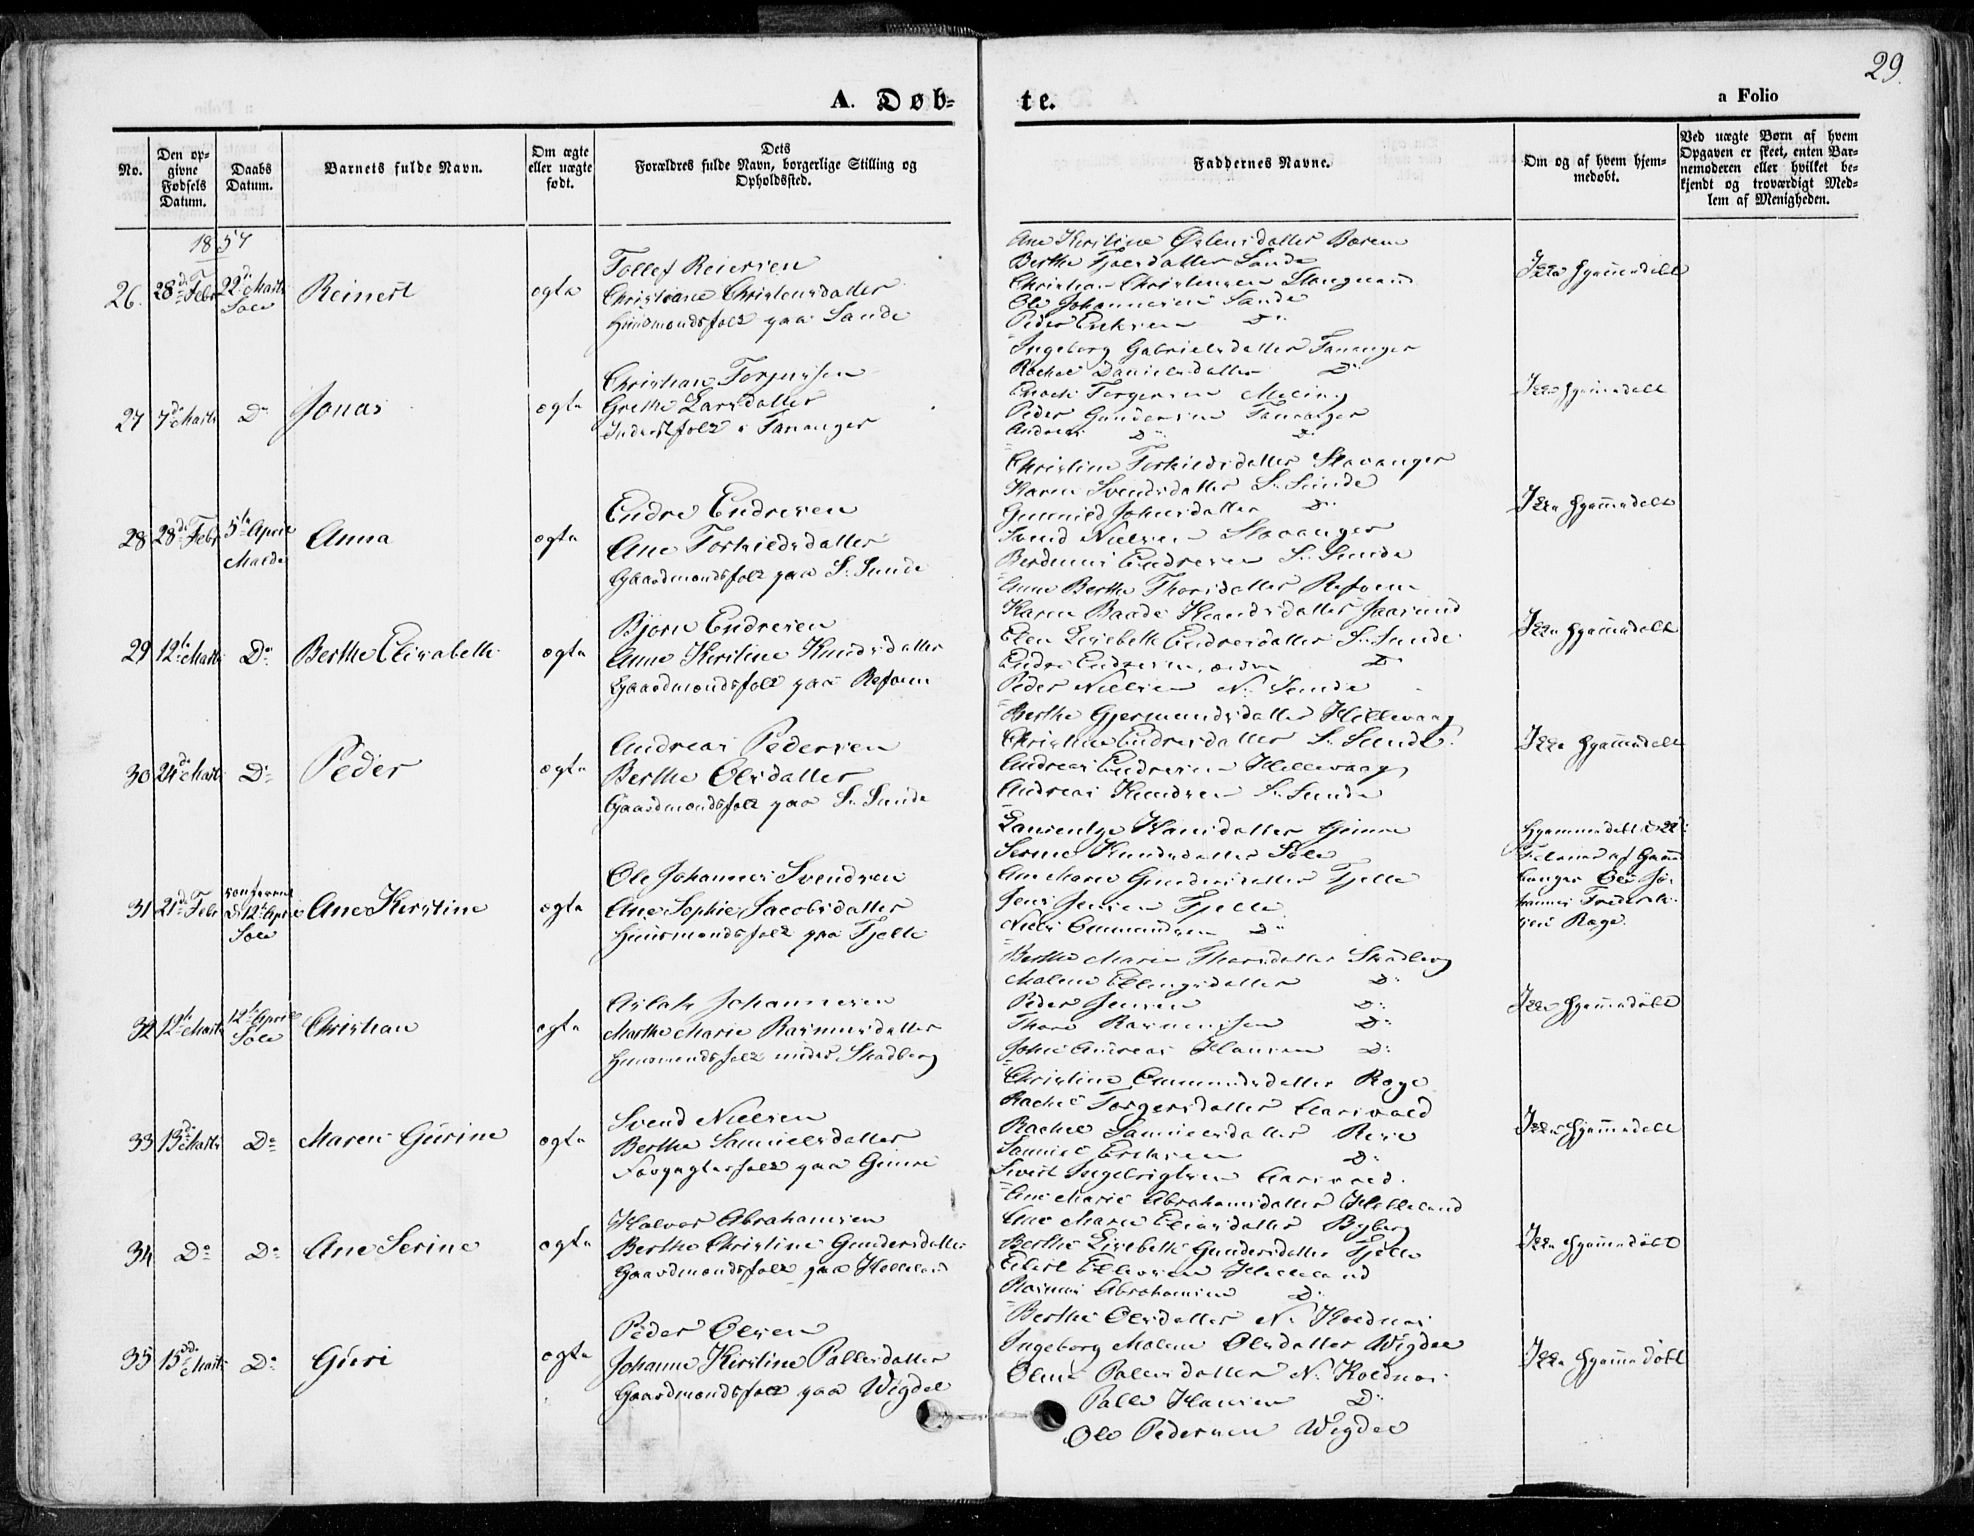 29.
A. Døb-
te.
a Folio
No.
Den op-
givne
Fødsels
Datum.
Daabs
Datum.
Barnets fulde Navn.
Om ægte
eller uægte
født.
Dets
Forældres fulde Navn, borgerlige Stilling og
Opholdssted.
Faddernes Navne.
Om og af hvem hjem-
medøbt.
Ved uægte Børn af hvem
Opgaven er skeet, enten Bar-
nemoderen eller hvilket be-
kjendt og troværdigt Med-
lem af Menigheden.
1857
26. 28de Febr 22de Marts
Sole
Reinert
ægte
Tollef Reiersen
Christiane Christensdatter
Huusmandsfolk paa Sande
Ane Kirstine Østensdatter
Berthe Sande
Christian Christensen
Ole Johannesen Sande
Peder Eriksen Do
Ikke hjemmedøbt
27 7de Marts Do
Jonas
ægte
Christian Torjussen
Grethe Larsdatter
Inderstfolk i Tananger
Ingeborg Gabrielsdatter Tananger
Rachel Danielsdatter Do
Enoch Torgersen Meling
Peder Gundersen Tananger
Andreas Do Do
Ikke hjemmedøbt
28 28de Febr 5te April
Malde
Anna
ægte
Endre Endresen
Ane Torkildsdatter
Gaardmandsfolk paa S. Sunde
Christine Torkildsdatter Stavanger
Karen Svendsdatter S. Sunde
Gunnild Johnsdatter Do
Svend Nielsen Stavanger
Endresen S. Sunde
Ikke hjemmedøbt
29 12te Marts Do
Berthe Elisabeth
ægte
Bjørn Endresen
Anne Kirstine Knudsdatter
Gaardmandsfolk paa Refsum
Anne Berthe Thorsdatter Refsum
Karen Baade
Elen Lisebeth Endresdatter S. Sunde
Endre Endresen Do
Peder Nielsen N. Sunde
Ikke hjemmedøbt
30 24de Marts Do
Peder
ægte
Andreas Pedersen
Berthe Olsdatter
Gaardmandsfolk paa S. Sunde
Berthe Gjermundsdatter Hillevaag
Christine Endresdatter S. Sunde
Andreas Endresen Hillevaag
Andreas Knudsen S. Sunde
Ikke hjemmedøbt
31 21de Febr
d: 12te April
Sole
Ane Kirstine
ægte
Ole Johannes Svendsen
Ane Sophie Jacobsdatter
Huusmandsfolk paa Fjelde
Hansdatter Gimre
Serine Knudsdatter Sole
Ane Marie Gundersdatter Fjelde
Jens Jensen Fjelde
Niels Ommundsen Do
Hjemmedøbt d: 22de
Februar af
Ole Jo-
hannes Frederik-
sen Rage.
32 12te Marts 12te April
Sole
Christian
ægte
Aslak Johannesen
Marthe Marie Rasmusdatter
Huusmandsfolk under Stadberg
Berthe Marie Thorsdatter Stadberg
Malene Ellingsdatter Do
Peder Jensen Do
Thore Rasmussen Do
John Andreas Hansen Do
Ikke hjemmedøbt
33 13de Marts Do
Maren Gurine
ægte
Svend Nielsen
Berthe Samuelsdatter
Forpagterfolk paa Gimre
Christine Ommundsdatter Rage
Rachel Torgersdatter Harevald
Rachel Samuelsdatter Rege
Samuel Eriksen Do
Sivert Ingebrigtsen
Ikke hjemmedøbt
34 Do Do
Ane Serine
ægte
Halvor Abrahamsen
Berthe Christine Gundersdatter
Gaardmandsfolk paa Helleland
Ane Marie Abrahamsdatter Helleland
Ane Marie Eliasdatter Byberg
Berthe Lisebeth Gundersdatter Fjelde
Helleland
Rasmus Abrahamsen Do
Ikke hjemmedøbt
35 15de Marts Do
Guri
ægte
Peder Olsen
Johanne Kirstine Pallesdatter
Gaardmandsfolk paa Wigdel
Berthe Olsdatter N. Kolnes
Ingeborg Malene Olsdatter Wigdel
Oline Pallesdatter N. Kolnes
Palle Hansen Do
Ole Pedersen Wigdel
Ikke hjemmedøbt